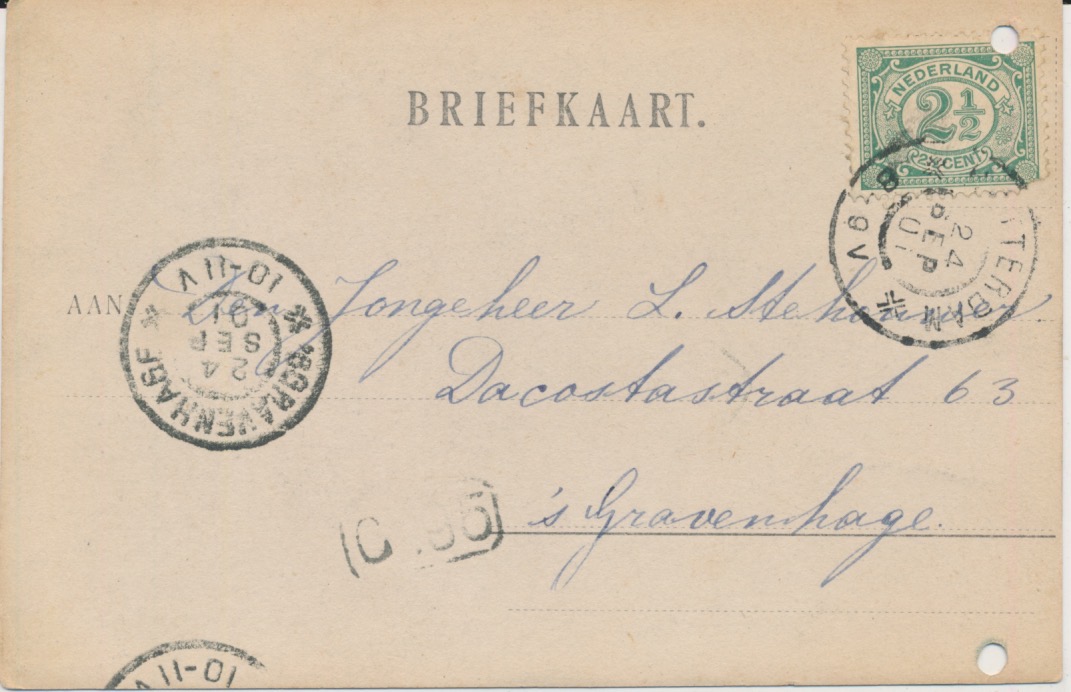 BRIEFKAART.
NEDERLAND
2½
2½ CENT
TTERDAM
24 SEP 01
8-9V
AAN Den Jongeheer L. Stehouwer
Dacostastraat 63
's Gravenhage.
'SGRAVENHAGE
24
SEP
01
10-11V
10-11V